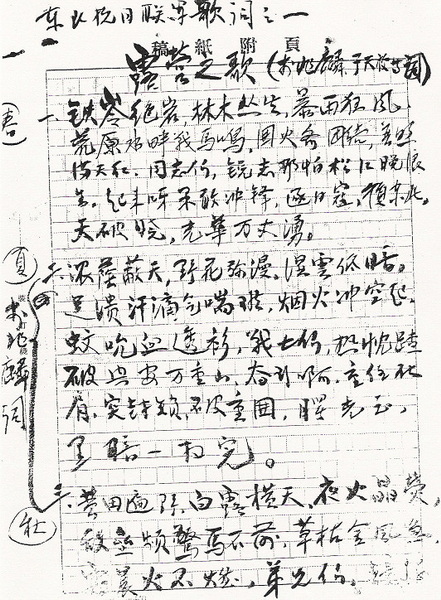 东北抗日联军歌词之一
稿 紙 附 頁
露营之歌(李兆麟、于天放等词)
(春)
一、铁岺绝岩,林木丛生,暴雨狂风,
荒原水畔战马鸣,围火齐团结,普照
满天红。同志们,锐志那怕松江晚浪
生。起来呀果敢冲锋,逐日寇,复东北。
天破晓,光华万丈湧。
(夏)
二、浓荫蔽天,野花弥漫,湿雲低暗。
足溃汗滴气喘难,烟火冲空起,
蚊吮血透衫,战士们,热忱踏
破兴安万重山,奋斗啊,重任在
肩,突封锁,破重围,曙光至,
黑暗一扫完。
李兆麟词
(秋)
三、荒田遍野,白露横天,夜火晶熒,
敌垒频驚马不前,草枯金風急,
霜晨火不燃,弟兄们,